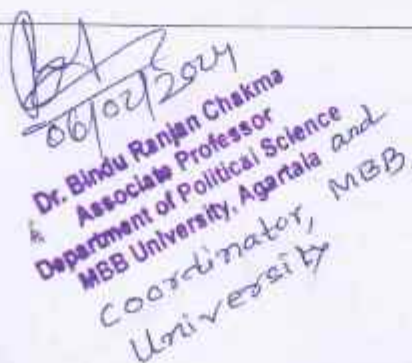 06/02/2024
Dr. Bindu Ranjan Chakma
Associate Professor
Department of Political Science
MBB University, Agartala and
Coordinator, MBB
University